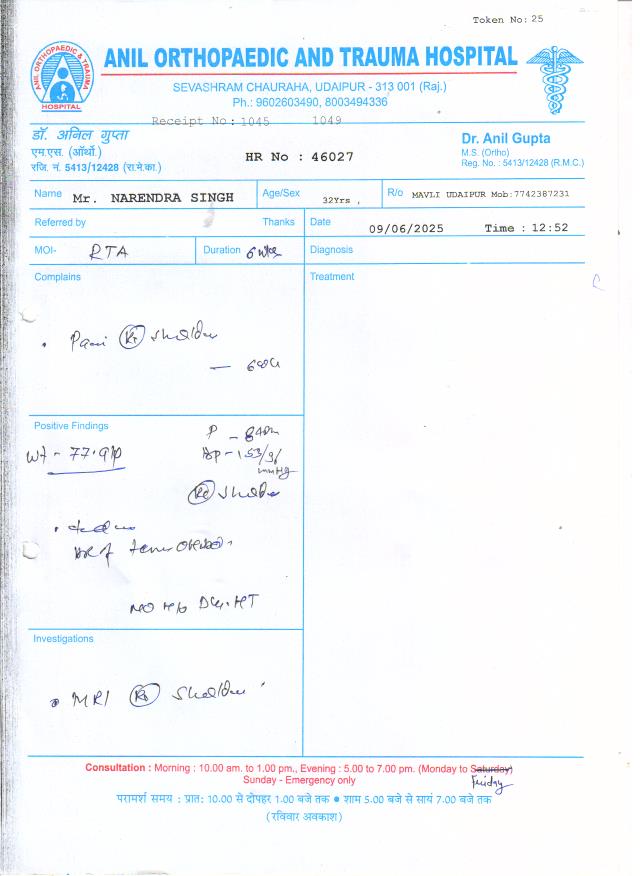 Token No: 25
ANIL ORTHOPAEDIC & TRAUMA
HOSPITAL
ANIL ORTHOPAEDIC AND TRAUMA HOSPITAL
SEVASHRAM CHAURAHA, UDAIPUR - 313 001 (Raj.)
Ph.: 9602603490, 8003494336
Receipt No: 1045 1049
डॉ. अनिल गुप्ता
एम.एस. (ऑर्थो.)
रजि. नं. 5413/12428 (रा.मे.का.)
HR No : 46027
Dr. Anil Gupta
M.S. (Ortho)
Reg. No. : 5413/12428 (R.M.C.)
Name Mr. NARENDRA SINGH Age/Sex 32Yrs , R/o MAVLI UDAIPUR Mob:7742387231
Referred by Thanks Date 09/06/2025 Time : 12:52
MOI- RTA Duration 6 Diagnosis
Complains Treatment
Pain Rt Shoulder
Positive Findings
P -
Wt - 77.9
BP - 153/96
mmHg
Rt Shoulder
NO H/o
Investigations
MRI Rt Shoulder
Consultation : Morning : 10.00 am. to 1.00 pm., Evening : 5.00 to 7.00 pm. (Monday to Saturday)
Friday
Sunday - Emergency only
परामर्श समय : प्रात: 10.00 से दोपहर 1.00 बजे तक ● शाम 5.00 बजे से सायं 7.00 बजे तक
(रविवार अवकाश)